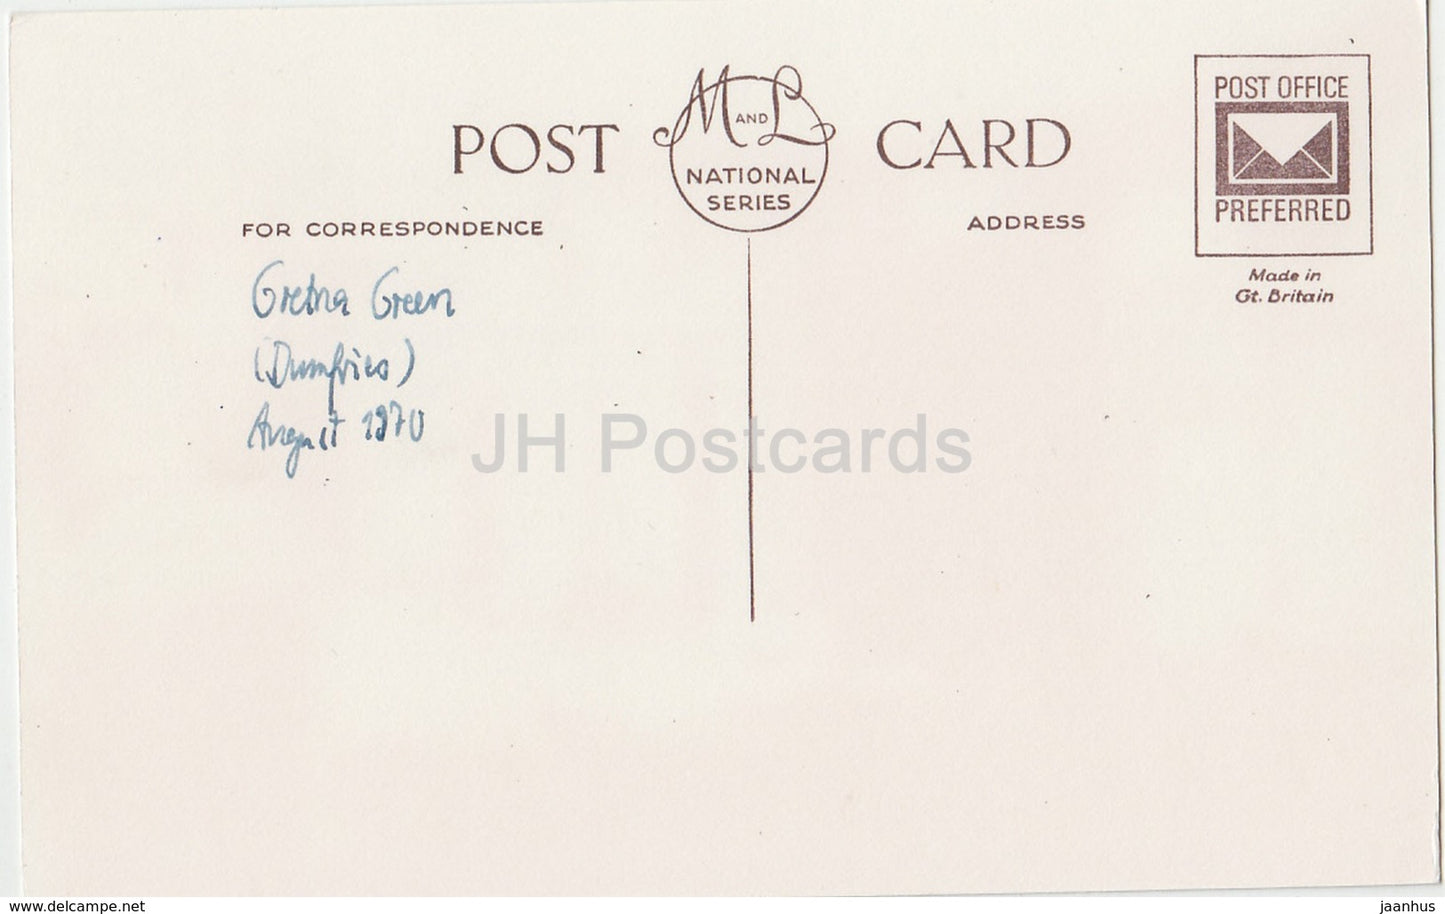 POST CARD
M AND L
NATIONAL
SERIES
POST OFFICE
PREFERRED
Made in
Gt. Britain
FOR CORRESPONDENCE
ADDRESS
Gretna Green
(Dumfries)
August 1970
JH Postcards
www.delcampe.net
jaanhus